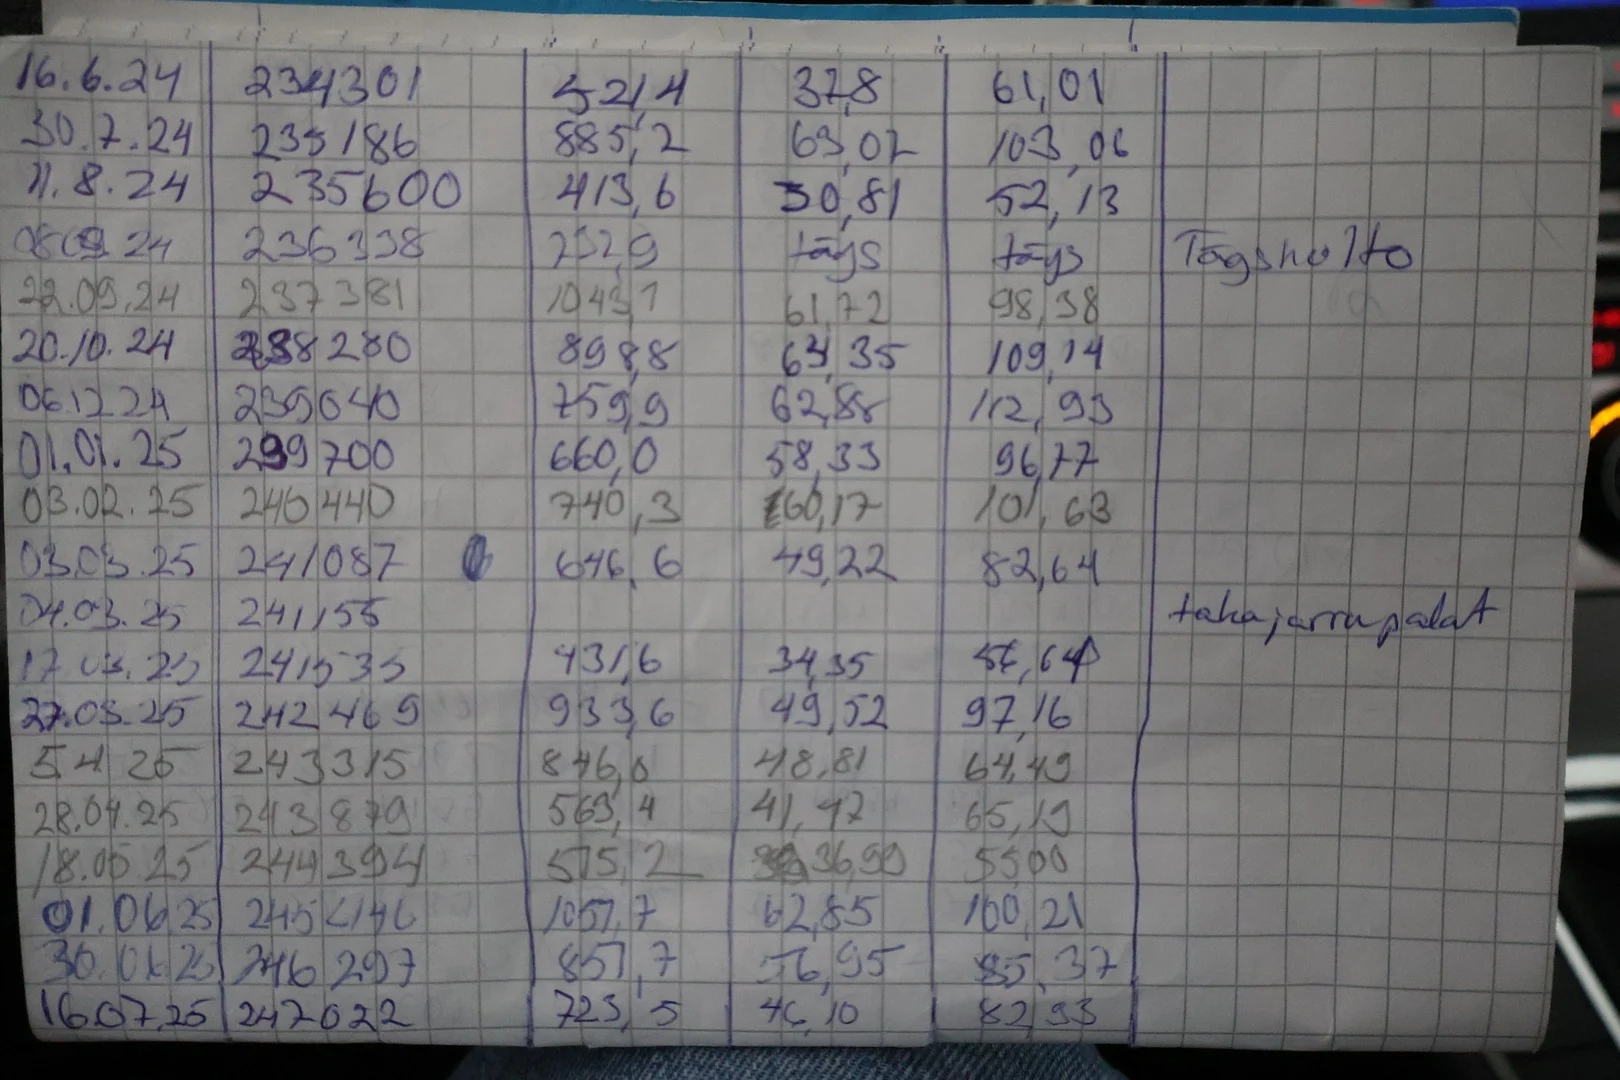 16.6.24 234301 521,4 37,8 61,01
30.7.24 235186 885,2 63,02 103,06
11.8.24 235600 413,6 30,81 52,13
08.09.24 236338 737,9 täys täys Täyshuolto
22.09.24 237381 1043,1 61,72 98,38
20.10.24 238280 898,8 64,35 109,14
06.12.24 239040 759,9 62,88 112,93
01.01.25 239700 660,0 58,33 96,77
03.02.25 240440 740,3 60,17 101,63
03.03.25 241087 646,6 49,22 82,64
04.03.25 241155 takajarrupalat
17.03.25 241535 431,6 34,35 56,64
27.03.25 242469 933,6 49,52 97,16
5.4.25 243315 846,0 48,81 64,49
28.04.25 243879 563,4 41,47 65,19
18.05.25 244394 515,2 36,99 55,00
01.06.25 245446 1051,7 62,85 100,21
30.06.25 246297 851,7 56,95 85,37
16.07.25 247022 723,5 46,10 82,93